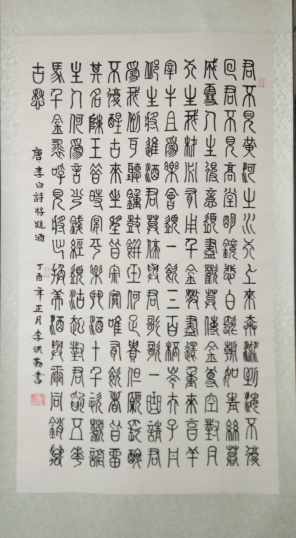 君不見黃河之水天上來奔流到海不復
回君不見高堂明鏡悲白髮朝如青絲暮
成雪人生得意須盡歡莫使金尊空對月
天生我材必有用千金散盡還復來烹羊
宰牛且爲樂會須一飲三百杯岑夫子丹
邱生將進酒君莫停與君歌一曲請君
爲我側耳聽鐘鼓饌玉何足貴但願長醉
不復醒古來聖賢皆寂寞唯有飲者留
其名陳王昔時宴平樂斗酒十千恣歡謔
主人何爲言少錢徑須沽取對君酌五花
馬千金裘呼兒將出換美酒與爾同銷萬
古愁
唐李白詩將進酒 丁酉年正月李洪書